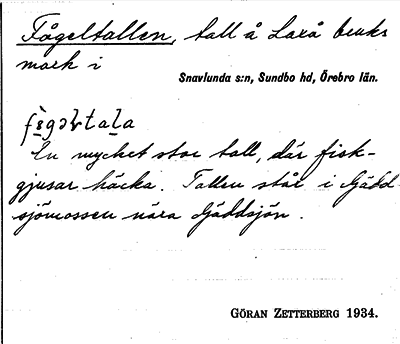 Fågeltallen, tall å Laxå bruks
mark i
Snavlunda s:n, Sundbo hd, Örebro län.
En mycket stor tall, där fisk-
gjusar häcka. Tallen står i Gädd-
sjömossen nära Gäddsjön.
GÖRAN ZETTERBERG 1934.